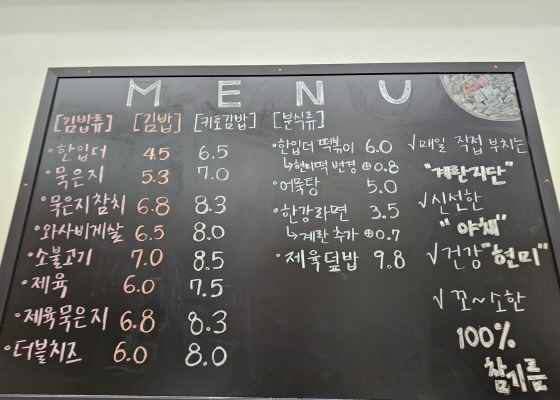 MENU
[김밥류] [김밥] [키토김밥]
·한입더 4.5 6.5
·묵은지 5.3 7.0
·묵은지참치 6.8 8.3
·와사비게살 6.5 8.0
·소불고기 7.0 8.5
·제육 6.0 7.5
·제육묵은지 6.8 8.3
·더블치즈 6.0 8.0
[분식류]
·한입더 떡볶이 6.0
↳현미떡 변경 ⊕0.8
·어묵탕 5.0
·한강라면 3.5
↳계란 추가 ⊕0.7
·제육덮밥 9.8
√매일 직접 부치는
"계란지단"
√신선한
"야채"
√건강 "현미"
√꼬~소한
100%
참기름